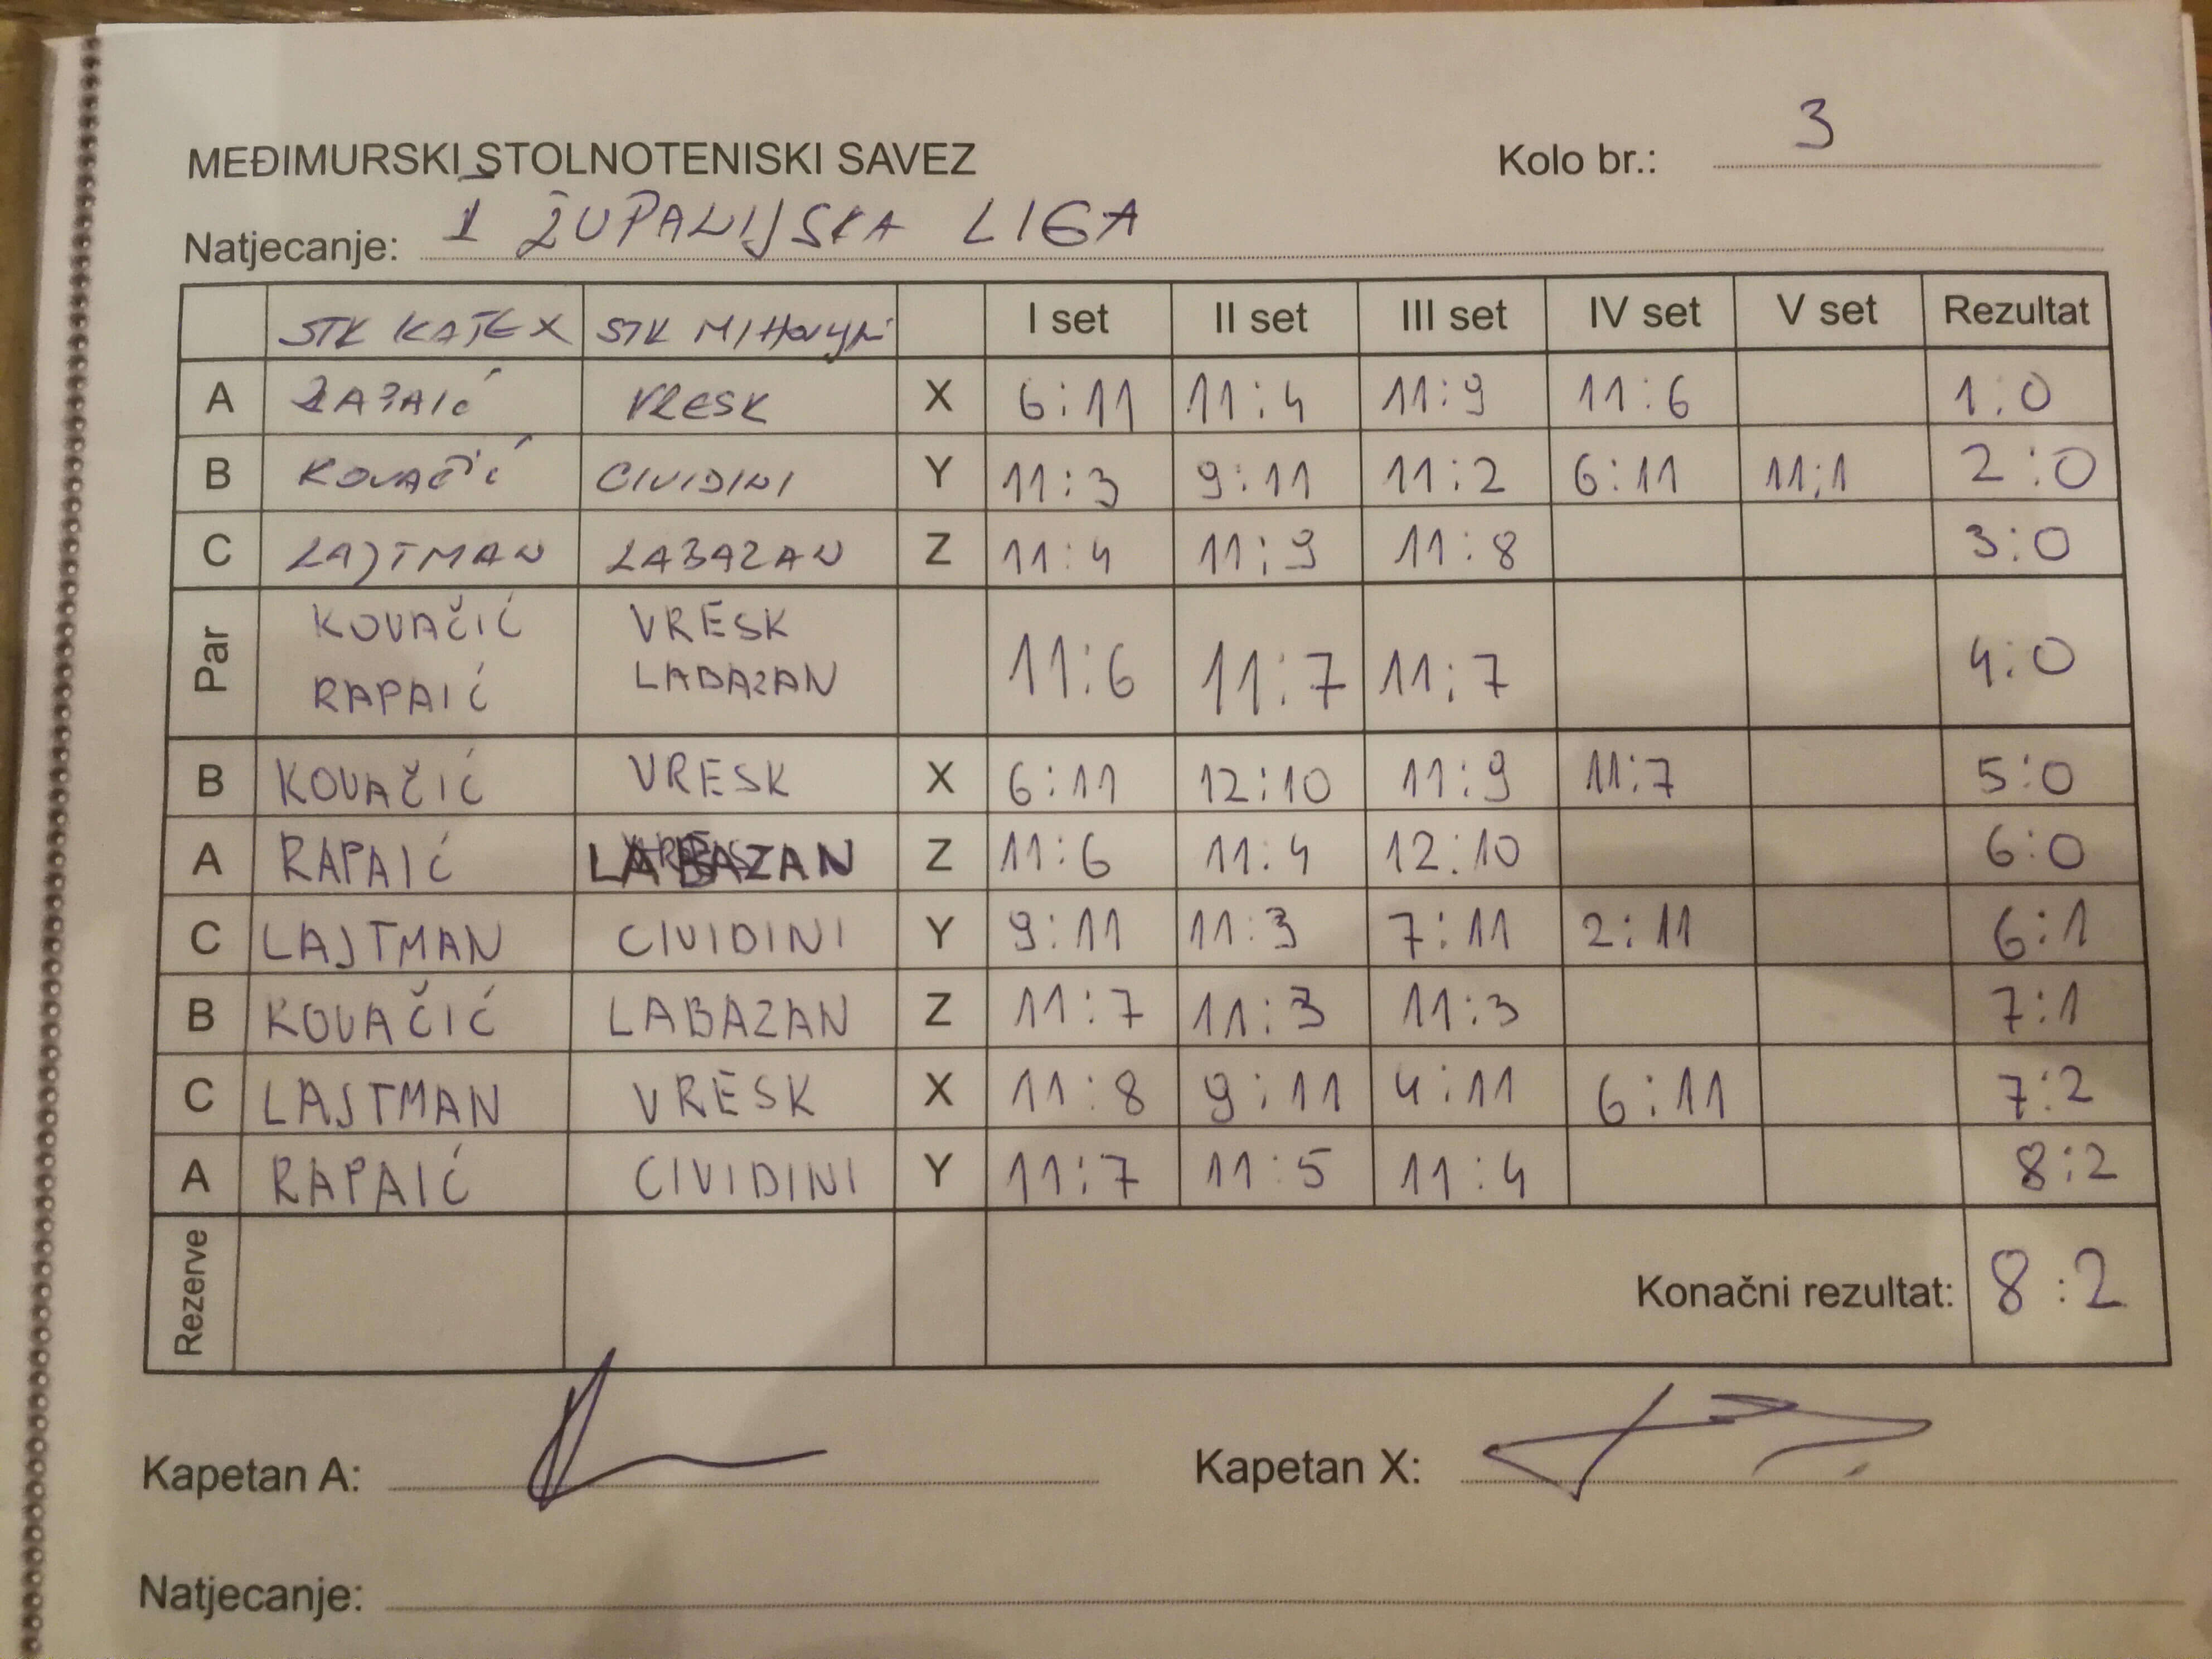 MEĐIMURSKI STOLNOTENISKI SAVEZ Kolo br.: 3
Natjecanje: I ŽUPANIJSKA LIGA
STK KATEX STK I set II set III set IV set V set Rezultat
A RAPAIĆ VRESK X 6:11 11:4 11:9 11:6 1:0
B KOVAČIĆ CIVIDINI Y 11:3 9:11 11:2 6:11 11:1 2:0
C LAJTMAN LABAZAN Z 11:4 11:9 11:8 3:0
Par KOVAČIĆ VRESK 11:6 11:7 11:7 4:0
RAPAIĆ LABAZAN
B KOVAČIĆ VRESK X 6:11 12:10 11:9 11:7 5:0
A RAPAIĆ LABAZAN Z 11:6 11:4 12:10 6:0
C LAJTMAN CIVIDINI Y 9:11 11:3 7:11 2:11 6:1
B KOVAČIĆ LABAZAN Z 11:7 11:3 11:3 7:1
C LAJTMAN VRESK X 11:8 9:11 4:11 6:11 7:2
A RAPAIĆ CIVIDINI Y 11:7 11:5 11:4 8:2
Rezerve Konačni rezultat: 8:2
Kapetan A: Kapetan X:
Natjecanje: